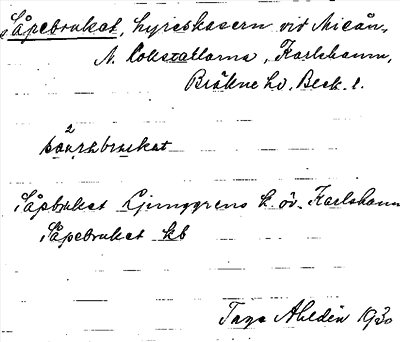 Såpebruket, hyreskasern vid Mieån,
N. Lokstallarna, Karlshamn,
Bräkne hd, Blek. l.
Såpbruket Ljunggrens k. öv. Karlshamn
Såpebruket kb
Tage Ahldén 1930